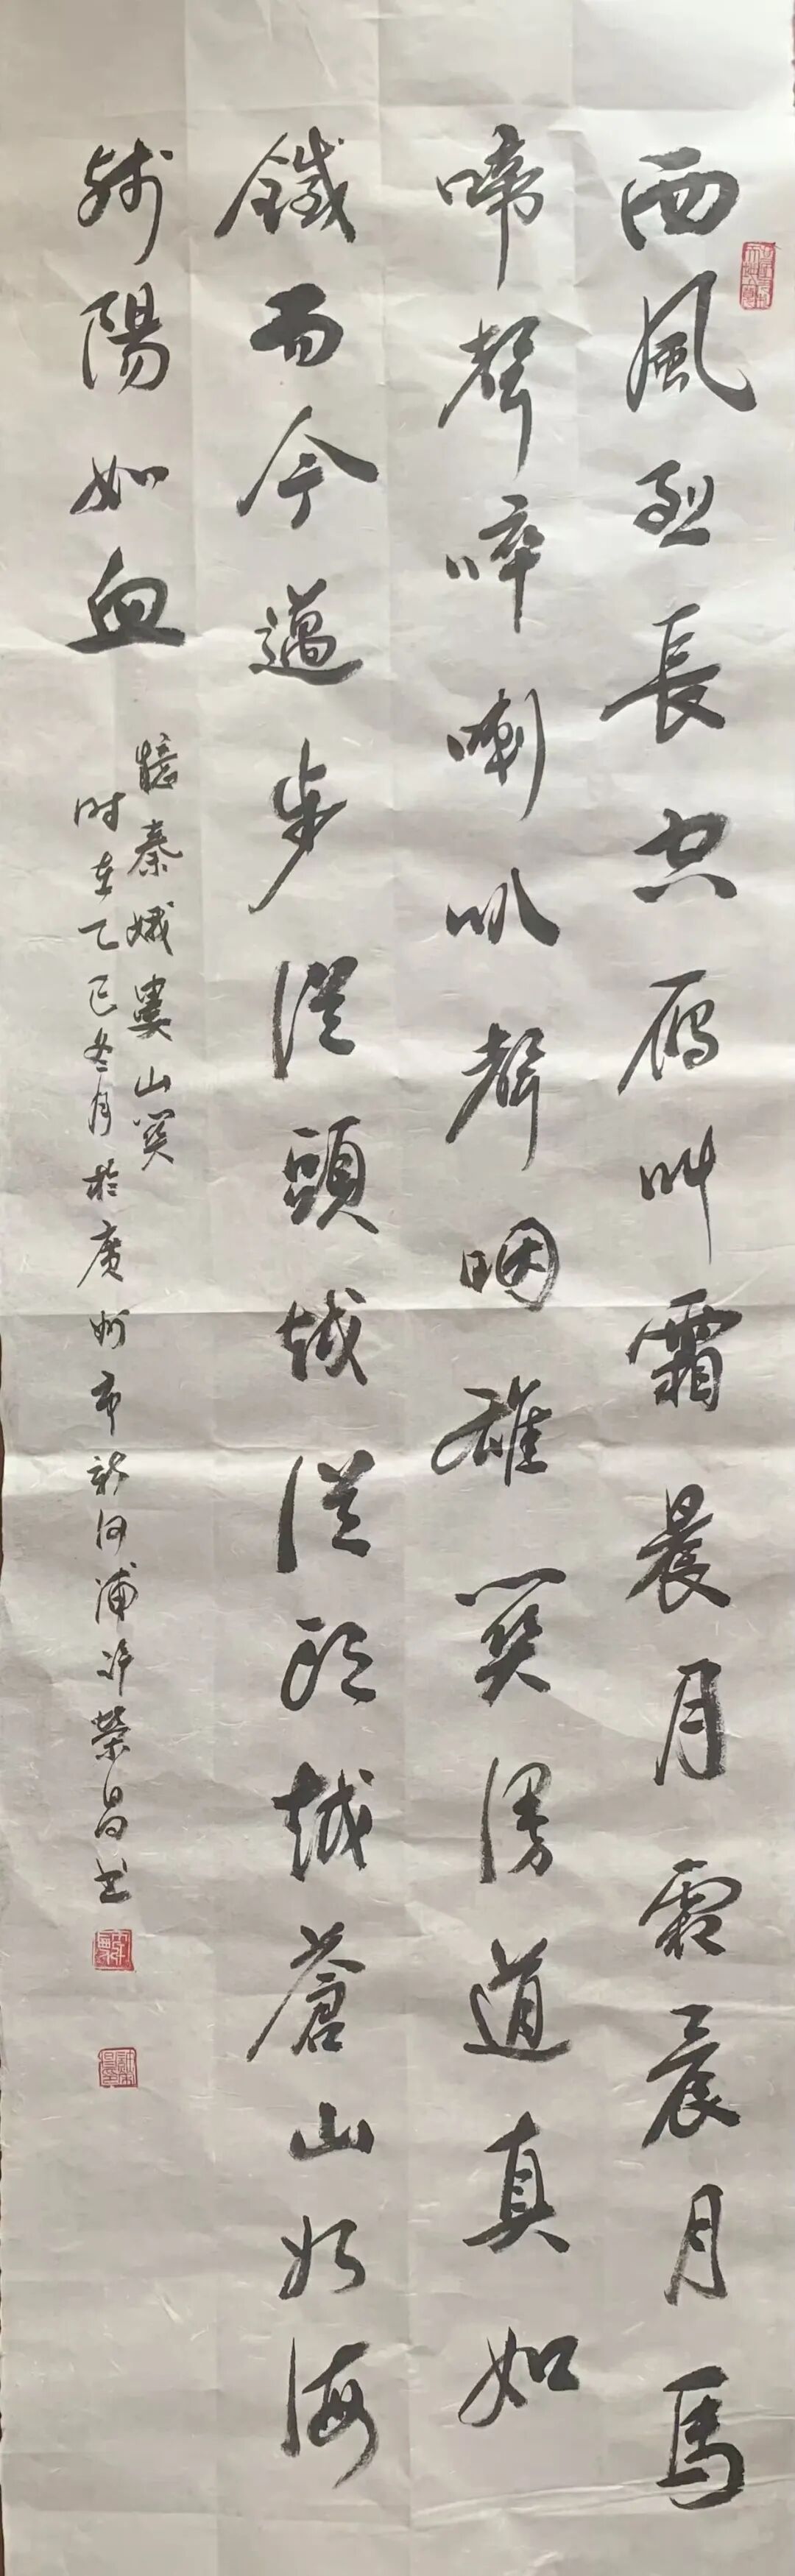 西風烈長空雁叫霜晨月霜晨月馬
啼聲啐喇叭聲咽雄関漫道真如
鐵而今邁步從頭越從頭越蒼山如海
殘陽如血
憶秦娥婁山関
时在乙巳冬月於廣州市新河浦许榮昌书